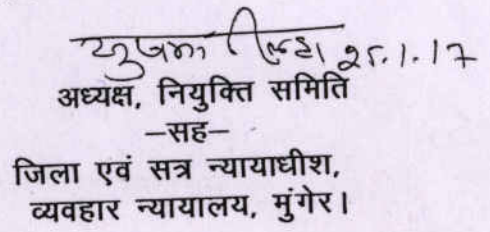 25.1.17
अध्यक्ष, नियुक्ति समिति
–सह–
जिला एवं सत्र न्यायाधीश,
व्यवहार न्यायालय, मुंगेर।